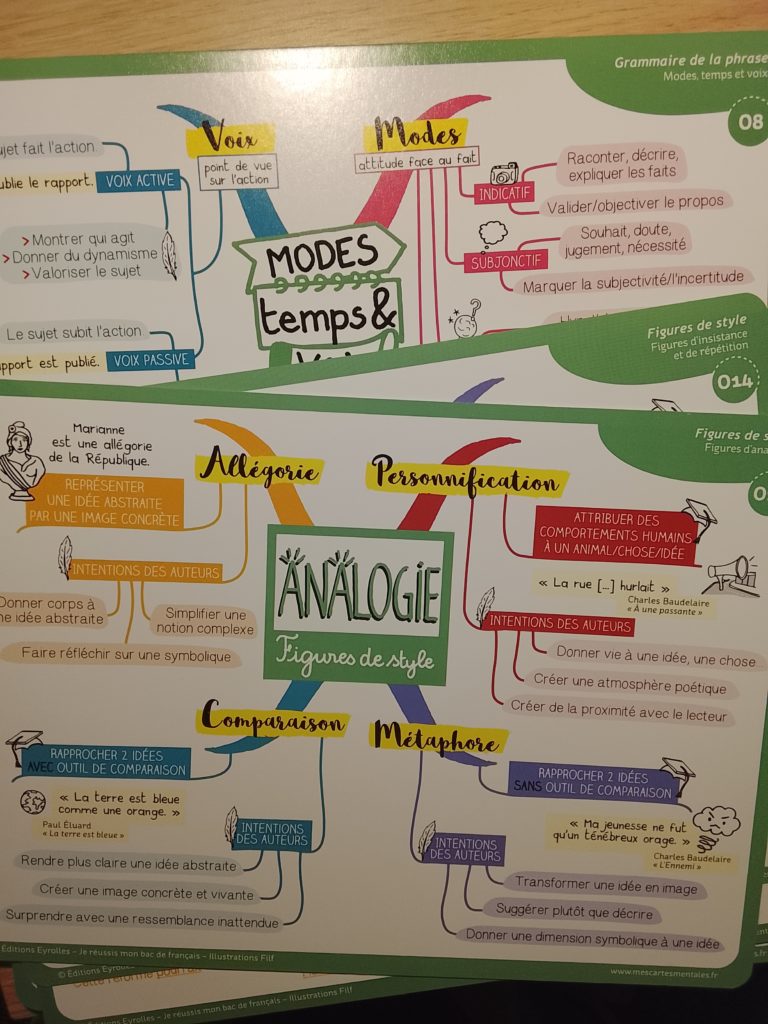 Grammaire de la phrase
Modes, temps et voix
08
Voix
point de vue
sur l'action
Modes
attitude face au fait
ujet fait l'action
ublie le rapport.
VOIX ACTIVE
> Montrer qui agit
> Donner du dynamisme
> Valoriser le sujet
Le sujet subit l'action
pport est publié.
VOIX PASSIVE
MODES
temps &
INDICATIF
Raconter, décrire,
expliquer les faits
Valider/objectiver le propos
SUBJONCTIF
Souhait, doute,
jugement, nécessité
Marquer la subjectivité/l'incertitude
Figures de style
Figures d'insistance
et de répétition
014
Figures de s
Figures d'ana
Marianne
est une allégorie
de la République.
Allégorie
REPRÉSENTER
UNE IDÉE ABSTRAITE
PAR UNE IMAGE CONCRÈTE
INTENTIONS DES AUTEURS
Donner corps à
ne idée abstraite
Simplifier une
notion complexe
Faire réfléchir sur une symbolique
Personnification
ATTRIBUER DES
COMPORTEMENTS HUMAINS
À UN ANIMAL/CHOSE/IDÉE
« La rue [...] hurlait »
Charles Baudelaire
« À une passante »
INTENTIONS DES AUTEURS
Donner vie à une idée, une chose...
Créer une atmosphère poétique
Créer de la proximité avec le lecteur
ANALOGIE
Figures de style
Comparaison
RAPPROCHER 2 IDÉES
AVEC OUTIL DE COMPARAISON
« La terre est bleue
comme une orange. »
Paul Éluard
« La terre est bleue »
INTENTIONS
DES AUTEURS
Rendre plus claire une idée abstraite
Créer une image concrète et vivante
Surprendre avec une ressemblance inattendue
Métaphore
RAPPROCHER 2 IDÉES
SANS OUTIL DE COMPARAISON
« Ma jeunesse ne fut
qu'un ténébreux orage. »
Charles Baudelaire
« L'Ennemi »
INTENTIONS
DES AUTEURS
Transformer une idée en image
Suggérer plutôt que décrire
Donner une dimension symbolique à une idée
Éditions Eyrolles – Je réussis mon bac de français – Illustrations Filf
www.mescartesmentales.fr
© Éditions Eyrolles
© Éditions Eyrolles – Je réussis mon bac de français – Illustrations Filf